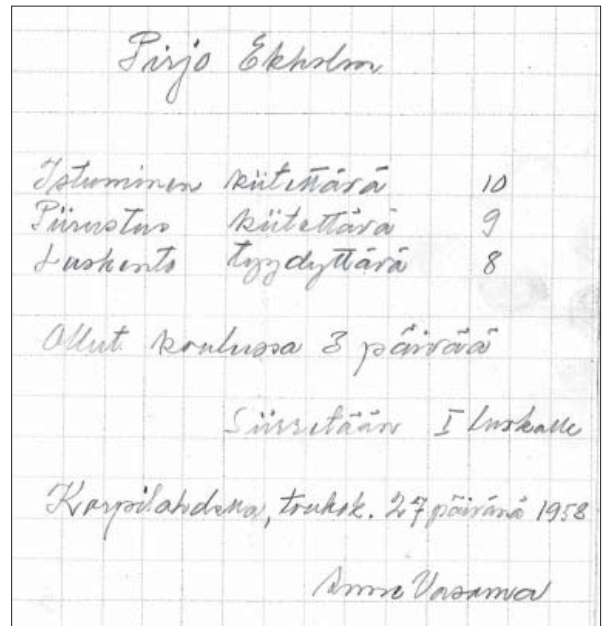 Pirjo Ekholm
Istuminen kiitettävä 10
Piirustus kiitettävä 9
Luskento tyydyttävä 8
Ollut koulussa 3 päivää
Siirretään I luokalle
Karpilahdella, toukok. 27 päivänä 1958
Anna Vasama